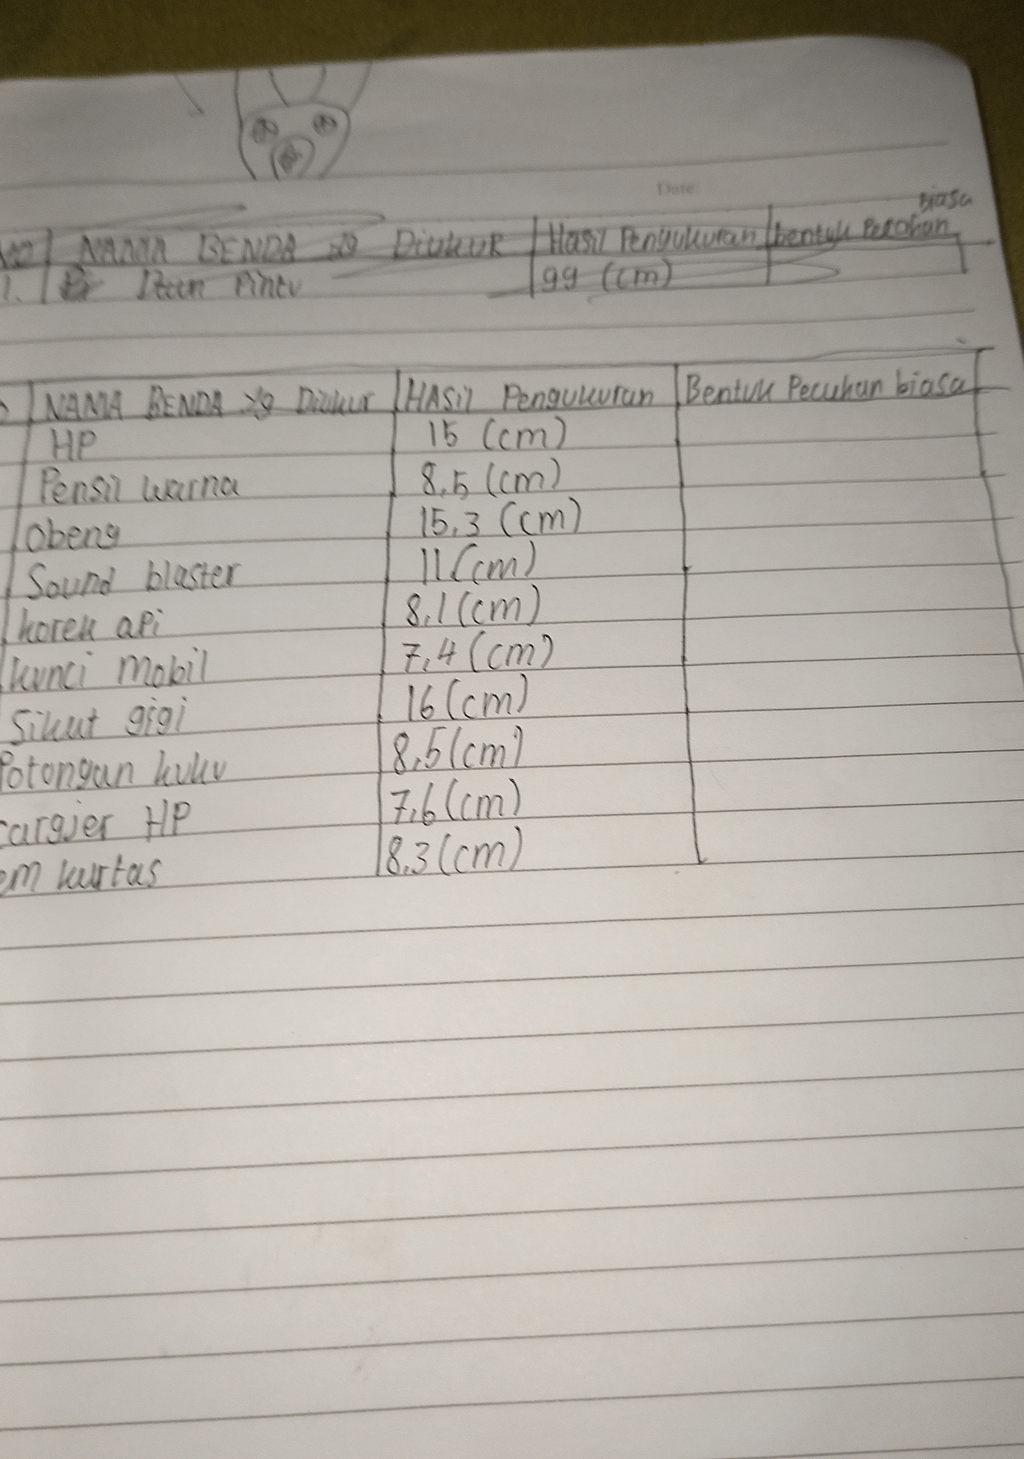 Date
biasa
NO NAMA BENDA yg DiukUR Hasil Pengukuran bentuk Pecahan
1. Pintu 99 (cm)
NAMA BENDA yg Diukur HASil Pengukuran Bentuk Pecahan biasa
HP 15 (cm)
Pensil warna 8,5 (cm)
Obeng 15,3 (cm)
Sound blaster 11 (cm)
korek api 8,1 (cm)
kunci mobil 7,4 (cm)
Sikat gigi 16 (cm)
Potongan kuku 8,5 (cm)
cargjer HP 7,6 (cm)
em kertas 8,3 (cm)